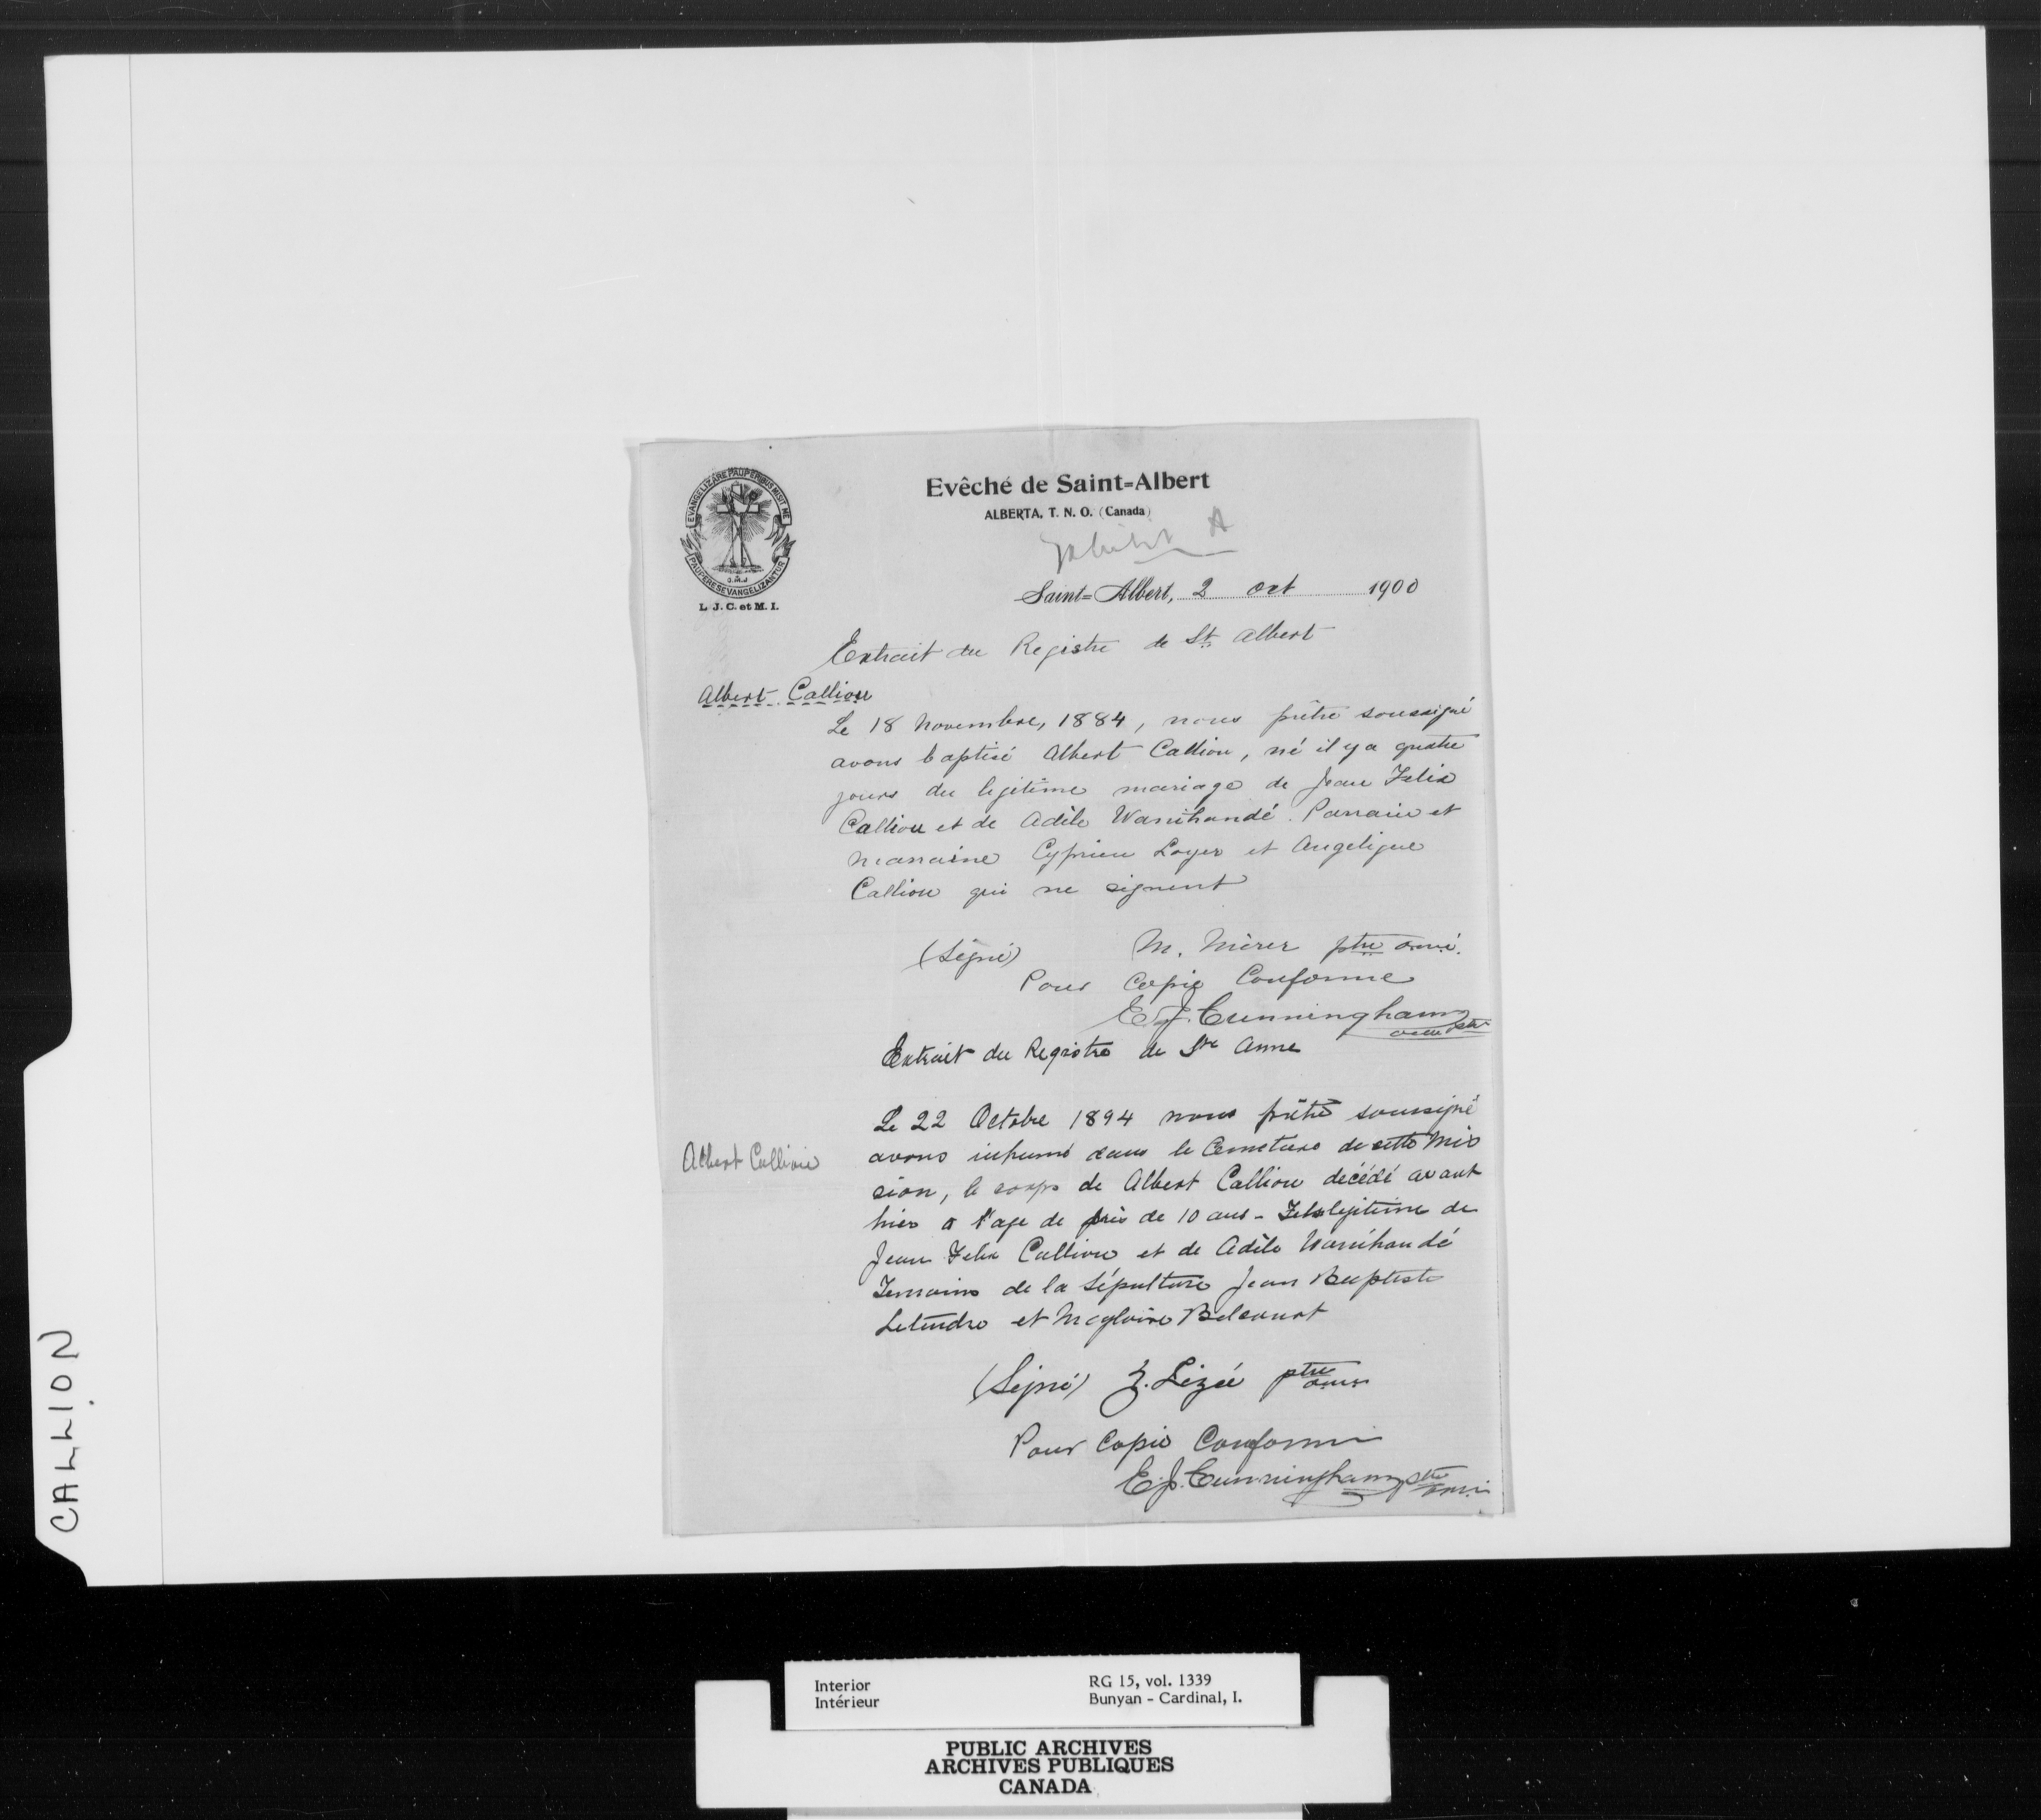 EVANGELIZARE PAUPERIBUS MISIT ME
PAUPERES EVANGELIZANTUR
O.M.I
L. J. C. et M. I.
Evêché de Saint-Albert
ALBERTA, T. N. O. (Canada)
Exhibit A
Saint-Albert, 2 Oct 1900
Extrait du Registre de St. Albert
Albert Calliou
Le 18 Novembre, 1884, nous prêtre soussigné
avons baptisé Albert Calliou, né il y a quatre
jours du legitime mariage de Jean Felix
Calliou et de Adèle Wanihandé. Parrain et
marraine Cyprien Loyer et Angelique
Calliou qui ne signent
(Signé) M. Mèrer ptre o.m.i.
Pour Copie Conforme
E. J. Cunningham
omi ptre
Extrait du Registre de Ste Anne
Albert Calliou
Le 22 Octobre 1894 nous prêtre soussigné
avons inhumé dans le Cemetiere de cette Mis
sion, le corps de Albert Calliou decédé avant
hier a l'age de près de 10 ans - Fils legitime de
Jean Felix Calliou et de Adèle Wanihandé
Temoins de la Sépulture Jean Baptiste
Letendre et Magloire Belcourt
(Signé) Z. Lizée ptre omi
Pour Copie Conforme
E. J. Cunningham ptre
omi
CALLION
Interior
Intérieur
RG 15, vol. 1339
Bunyan - Cardinal, I.
PUBLIC ARCHIVES
ARCHIVES PUBLIQUES
CANADA